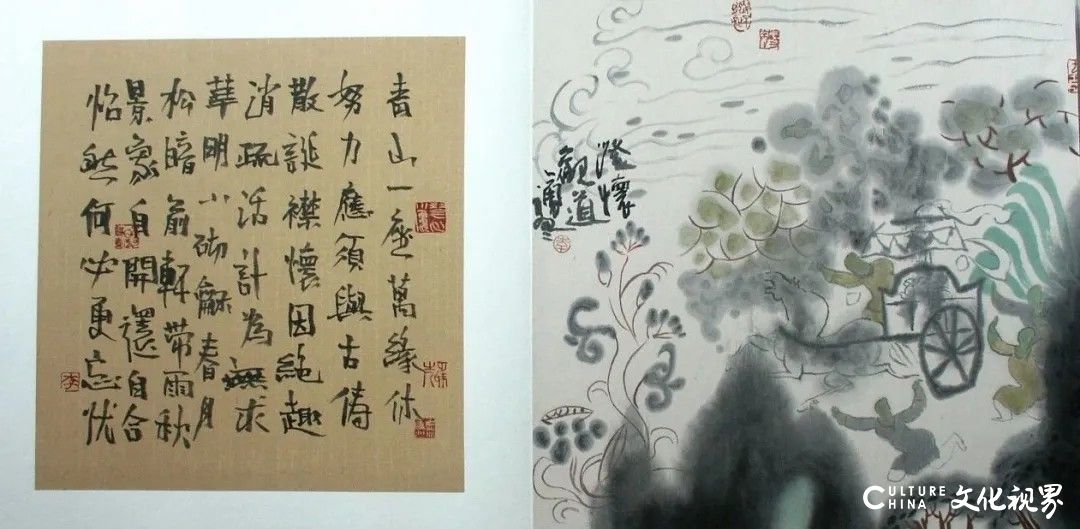 青山一座萬緣休
努力應須與古儔
散誕襟懷因絕趣
消疏活計為無求
華明小砌龢春月
松暗前軒帶雨秋
景象自開還自合
怡然何必更忘忧
澄懷
觀道
CULTURE CHINA 文化视界